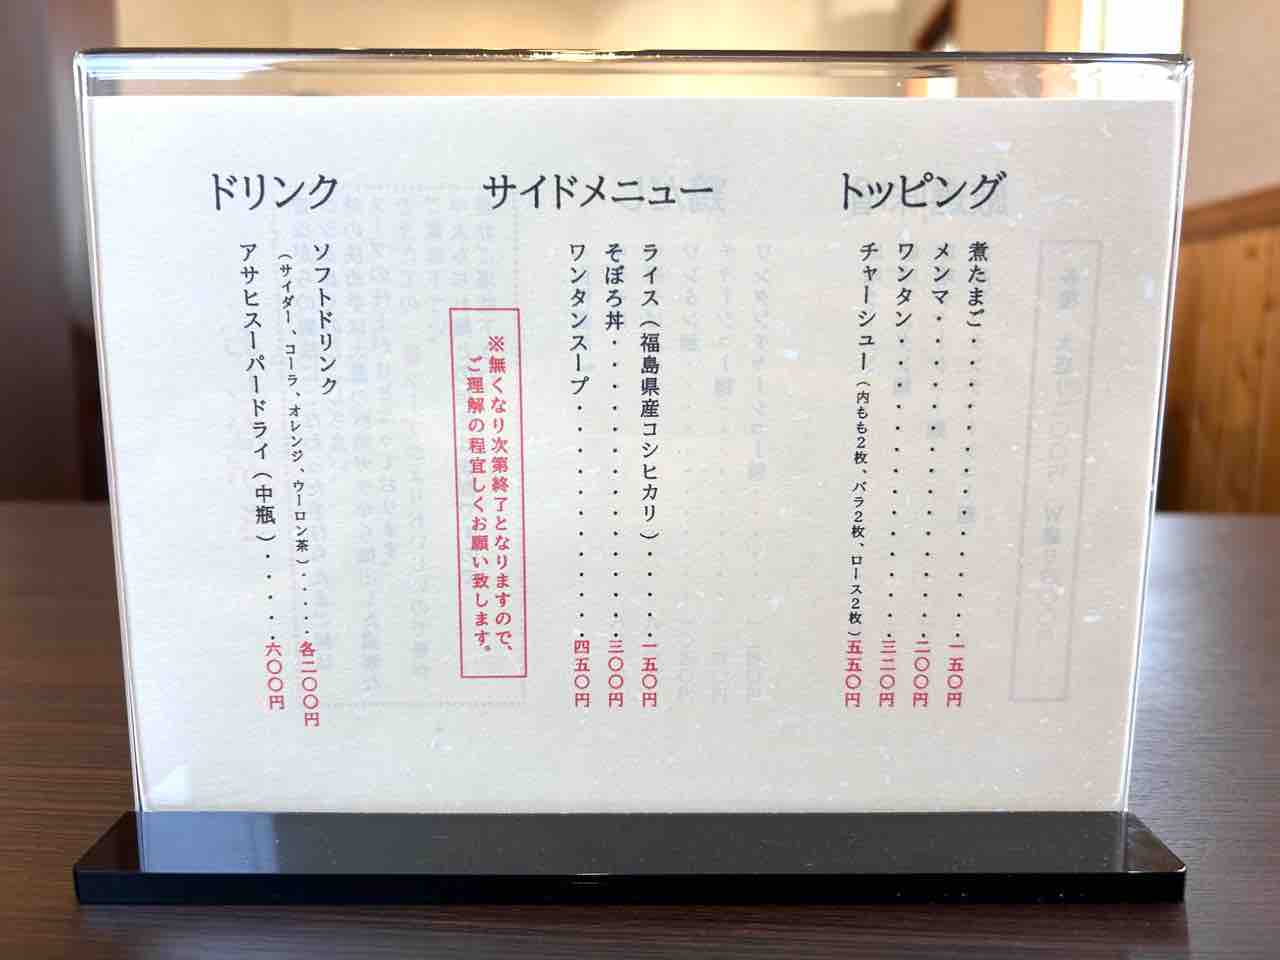 トッピング
煮たまご・・・・・・・・・・・・・一五〇円
メンマ・・・・・・・・・・・・・・二〇〇円
ワンタン・・・・・・・・・・・・・三二〇円
チャーシュー（内もも2枚、バラ2枚、ロース2枚）五五〇円
サイドメニュー
ライス（福島県産コシヒカリ）・・・・一五〇円
そぼろ丼・・・・・・・・・・・・・三〇〇円
ワンタンスープ・・・・・・・・・・四五〇円
※無くなり次第終了となりますので、
ご理解の程宜しくお願い致します。
ドリンク
ソフトドリンク
（サイダー、コーラ、オレンジ、ウーロン茶）・・・・各二〇〇円
アサヒスーパードライ（中瓶）・・・・・六〇〇円